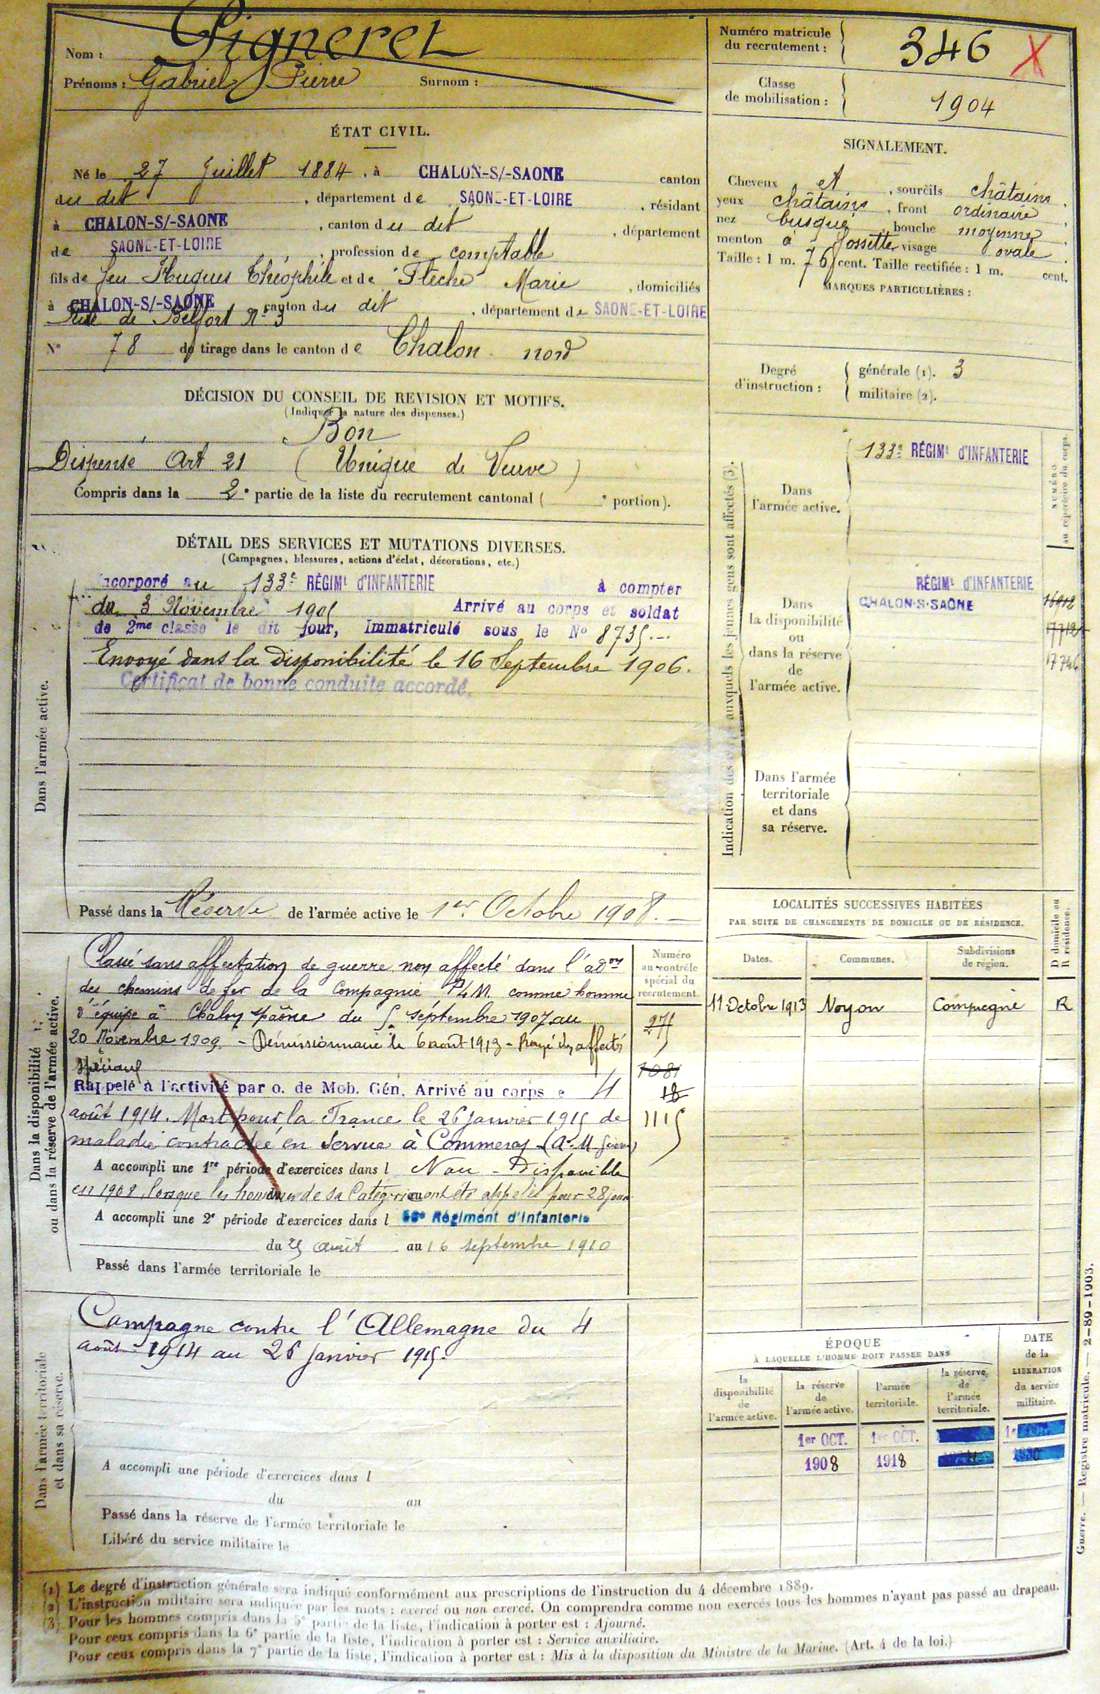 Nom : Pigneret
Prénoms : Gabriel Pierre Surnom :
Numéro matricule du recrutement : 346 X
Classe de mobilisation : 1904
ÉTAT CIVIL.
Né le 27 Juillet 1884, à CHALON-S/-SAONE canton
du dit, département de SAONE-ET-LOIRE, résidant
à CHALON-S/-SAONE, canton du dit, département
de SAONE-ET-LOIRE, profession de comptable
fils de feu Hugues Théophile et de Flèche Marie, domiciliés
à CHALON-S/-SAONE canton du dit, département de SAONE-ET-LOIRE
Rue de Belfort N° 3
N° 78 de tirage dans le canton de Chalon nord
SIGNALEMENT.
Cheveux et, sourcils châtains,
yeux châtains, front ordinaire
nez busqué, bouche moyenne,
menton à fossette, visage ovale.
Taille : 1 m. 76 cent. Taille rectifiée : 1 m. cent.
MARQUES PARTICULIÈRES :
Degré d'instruction : générale (1). 3
militaire (2).
DÉCISION DU CONSEIL DE REVISION ET MOTIFS.
(Indiquer la nature des dispenses.)
Bon
Dispensé Art 21 (Unique de Veuve)
Compris dans la 2e partie de la liste du recrutement cantonal ( e portion).
DÉTAIL DES SERVICES ET MUTATIONS DIVERSES.
(Campagnes, blessures, actions d'éclat, décorations, etc.)
Dans l'armée active.
Incorporé au 133e RÉGIMt D'INFANTERIE à compter
du 3 Novembre 1905 Arrivé au corps et soldat
de 2me classe le dit jour, Immatriculé sous le No 8735.
Envoyé dans la disponibilité le 16 Septembre 1906.
Certificat de bonne conduite accordé.
Passé dans la Réserve de l'armée active le 1er Octobre 1908.
Indication des corps auxquels les jeunes gens sont affectés (3).
NUMÉRO au répertoire du corps.
Dans l'armée active.
133e RÉGIMt D'INFANTERIE
Dans la disponibilité ou dans la réserve de l'armée active.
RÉGIMt D'INFANTERIE
CHALON-S-SAÔNE
Dans l'armée territoriale et dans sa réserve.
LOCALITÉS SUCCESSIVES HABITÉES
PAR SUITE DE CHANGEMENTS DE DOMICILE OU DE RÉSIDENCE.
Dates. Communes. Subdivisions de région. D domicile ou R résidence.
11 Octobre 1913 Noyon Compiegne R
Dans la disponibilité ou dans la réserve de l'armée active.
Numéro au contrôle spécial du recrutement.
Classé sans affectation de guerre non affecté dans l'adon
des chemins de fer de la Compagnie PLM comme homme
d'équipe à Chalon s/ Saône du 5 septembre 1907 au
20 Novembre 1909. - Démissionnaire le 6 août 1913 - Rayé des affectés
spéciaux
Rappelé à l'activité par o. de Mob. Gén. Arrivé au corps le 4
août 1914. Mort pour la France le 26 janvier 1915 de
maladie contractée en service à Commercy
275
1081
18
1115
A accompli une 1re période d'exercices dans l Non - Disponible
en 1908, lorsque les hommes de sa Catégorie ont été appelés pour 28 jours
A accompli une 2e période d'exercices dans l 56e Régiment d'Infanterie
du 25 août au 16 septembre 1910
Passé dans l'armée territoriale le
Dans l'armée territoriale et dans sa réserve.
Campagne contre l'Allemagne du 4
août 1914 au 26 janvier 1915.
A accompli une période d'exercices dans l
du au
Passé dans la réserve de l'armée territoriale le
Libéré du service militaire le
ÉPOQUE
À LAQUELLE L'HOMME DOIT PASSER DANS
la disponibilité de l'armée active. la réserve de l'armée active. l'armée territoriale. la réserve de l'armée territoriale. DATE de la LIBÉRATION du service militaire.
1er OCT. 1er OCT.
1908 1918
Guerre. — Registre matricule. — 2-89-1903.
(1) Le degré d'instruction générale sera indiqué conformément aux prescriptions de l'instruction du 4 décembre 1889.
(2) L'instruction militaire sera indiquée par les mots : exercé ou non exercé. On comprendra comme non exercés tous les hommes n'ayant pas passé au drapeau.
(3) Pour les hommes compris dans la 5e partie de la liste, l'indication à porter est : Ajourné.
Pour ceux compris dans la 6e partie de la liste, l'indication à porter est : Service auxiliaire.
Pour ceux compris dans la 7e partie de la liste, l'indication à porter est : Mis à la disposition du Ministre de la Marine. (Art. 4 de la loi.)